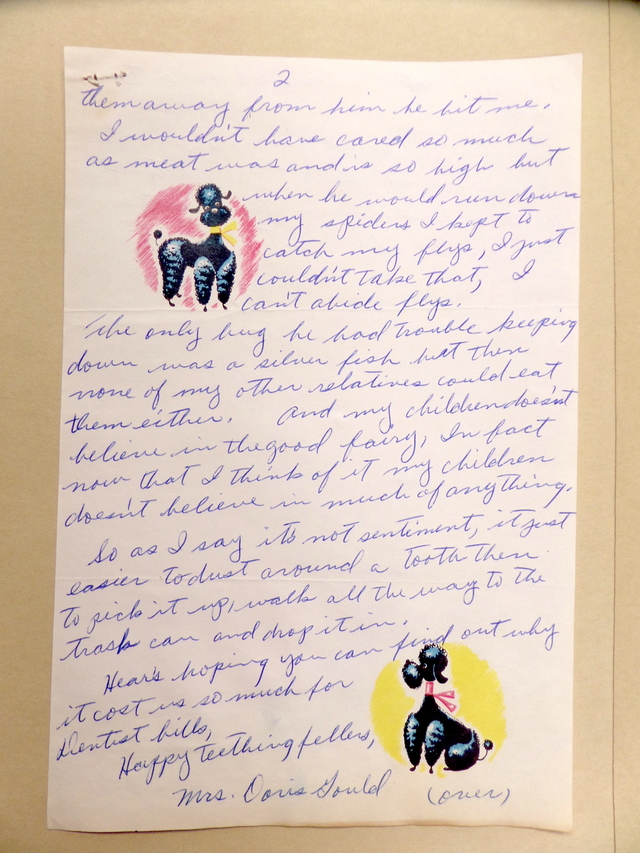 2
them away from him he bit me.
I wouldn't have cared so much
as meat was and is so high but
when he would run down
my spiders I kept to
catch my flys, I just
couldn't take that, I
can't abide flys.
The only bug he had trouble keeping
down was a silver fish but then
none of my other relatives could eat
them either. And my children doesn't
believe in the good fairy, In fact
now that I think of it my children
doesn't believe in much of anything.
So as I say it's not sentiment, it just
easier to dust around a tooth then
to pick it up, walk all the way to the
trash can and drop it in.
Hear's hoping you can find out why
it cost us so much for
Dentist bills,
Happy teething fellers,
Mrs. Doris Gould (over)